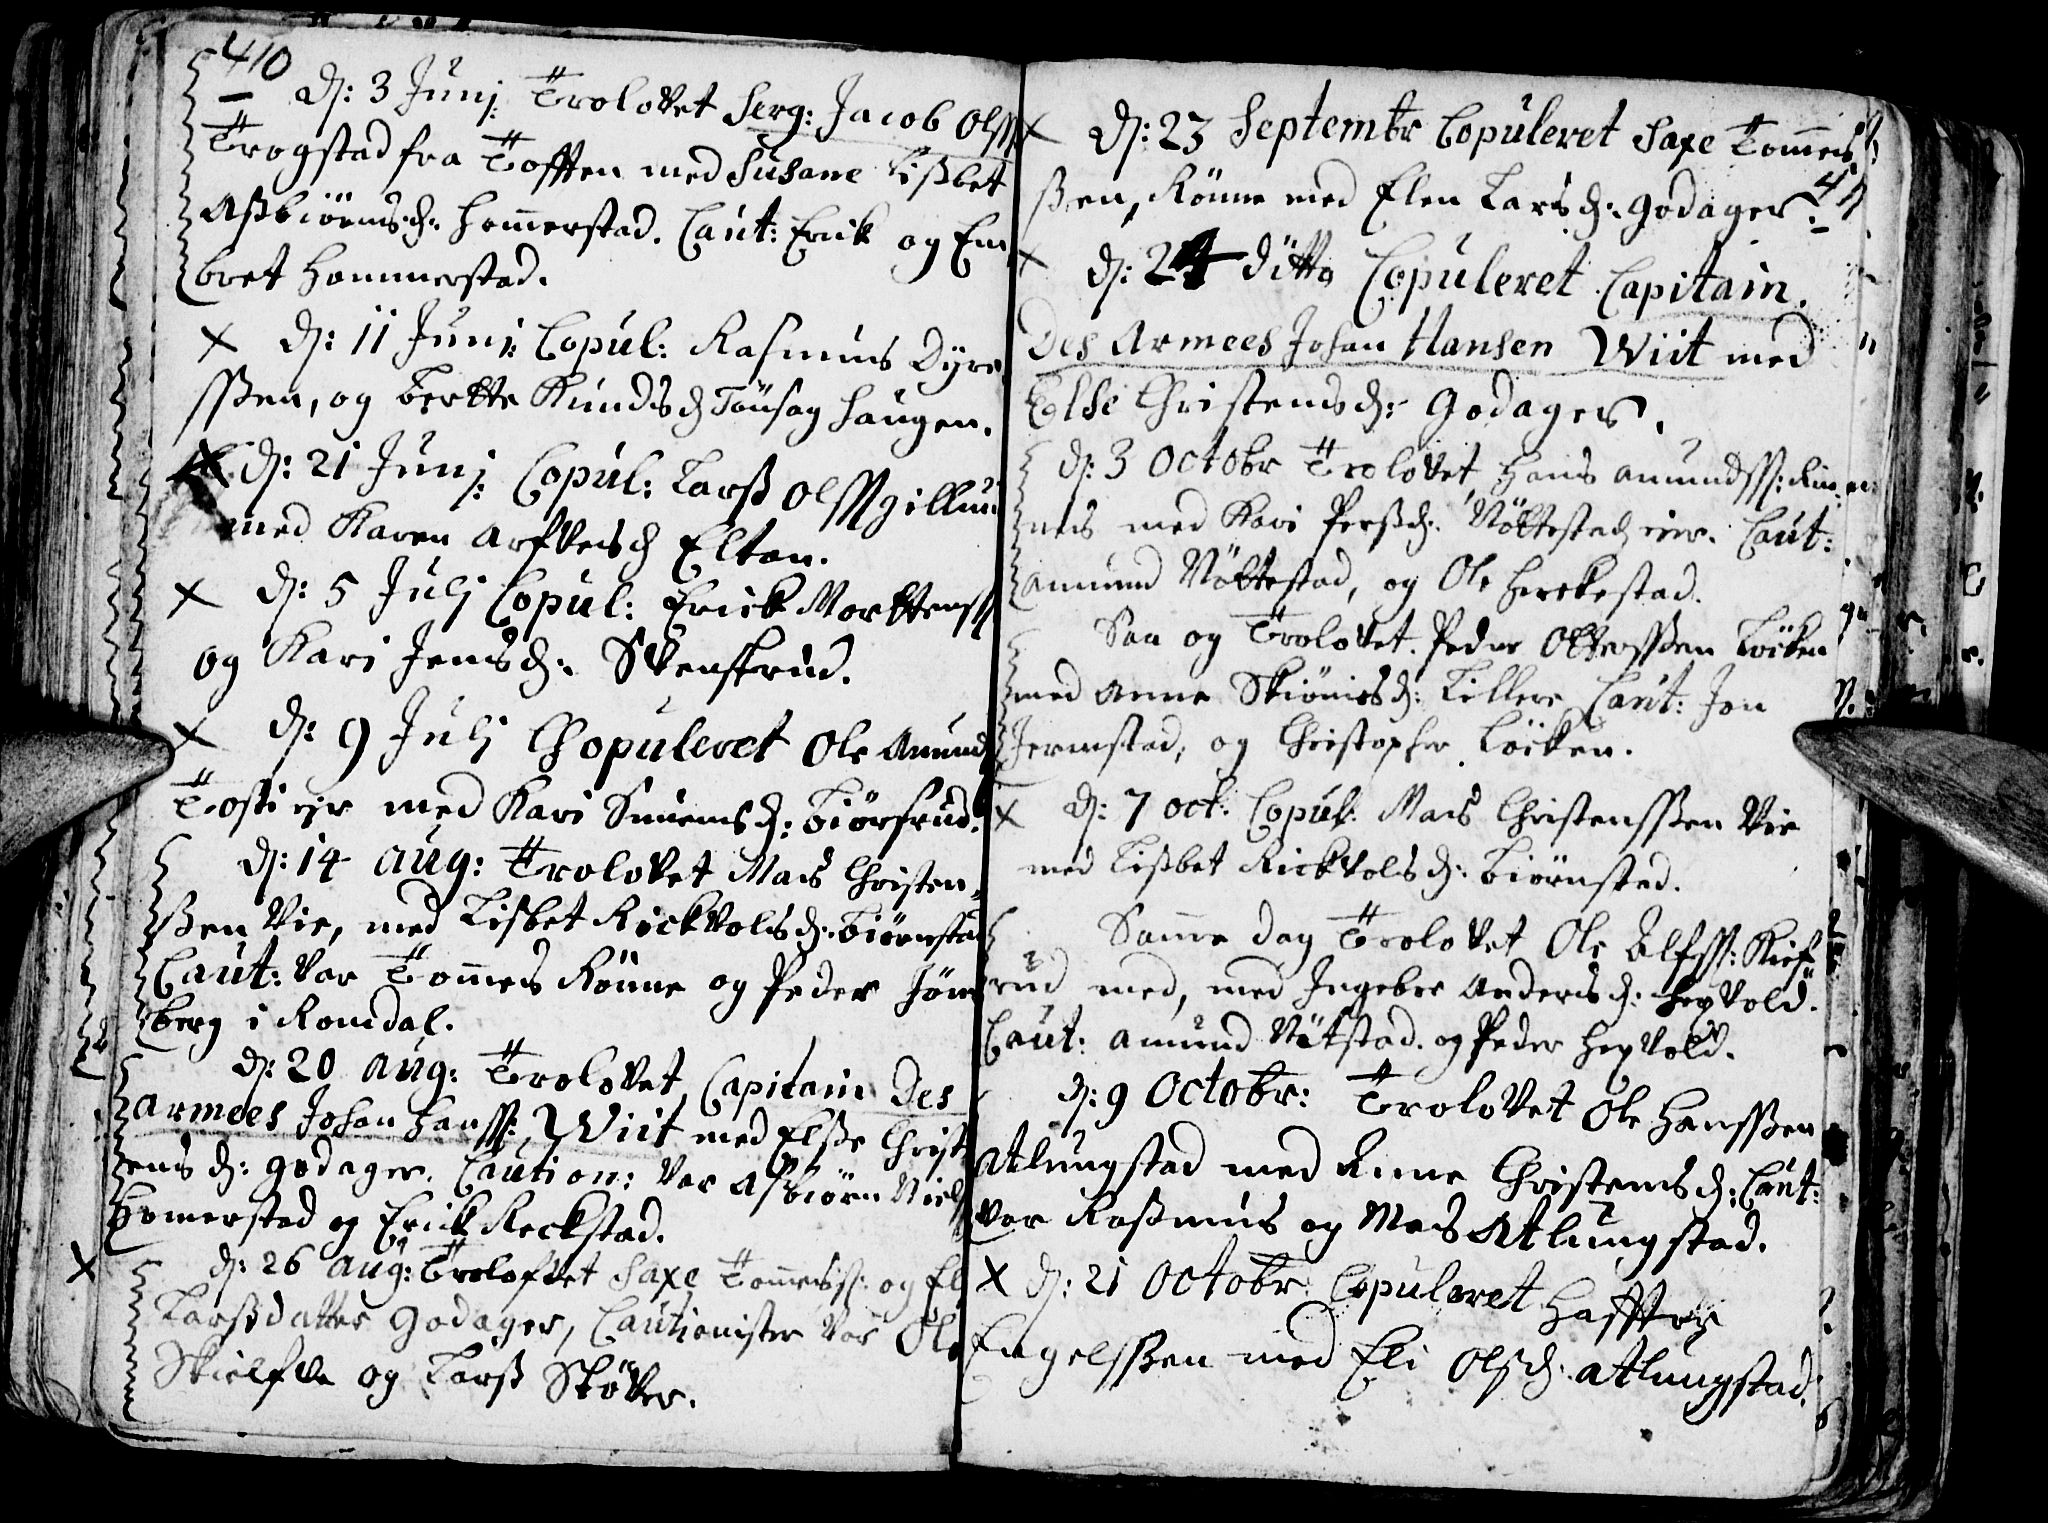 410
d: 3 Junj: Trolovet Serg: Jacob Olss
Trogstad fra Tofften med Susane Lißbet
Aßbiörnsd: Hommerstad. Caut: Erick og Em
bret Hommerstad.
x d: 11 Junj: Copul: Rasmus Dyre
sßen, og Berthe Knudsd Tönsag Haugen.
x d: 21 Junj: Copul: Larß Olss Gillun
med Karen Arfvesd Elton.
x d: 5 Julj Copul: Erick Morttenss
og Kari Jensd: Svenskrud.
x d: 9 Julj Chopuleret Ole Amund
Tosti ejr med Kari Simensd: Biørsrud.
d: 14 Aug: Trolovet Mads Christen-
ßen Vie, med Lisbet Rickvolsd: Biørnstad
Caut: Var Tommes Rönne og Peder
berg i Romdal.
d: 20 Aug: Trolovet Capitain Des
Armees Johan Hanss: Wiit med Elße Christ
ensd: Godager. Caution: Var Asbiörn Niels
Homerstad og Erick Reckstad.
x d: 26 Aug: Trolofvet Saxe Tommess: og El
Larßdatter Godager, Cautionister Var Ole
Skielfve og Larß Stöver.
x d: 23 Septembr Copuleret Saxe Tommes
ßen, Rönne med Elen Larsd: Godager.
41
x d: 24 Ditto Copuleret Capitain
Des Armees Johan Hansen Wiit med
Else Christensd: Godager.
d: 3 Octobr Trolovet Hans Amundss: Rin
nes med Kari Perßd: Nöttestad ejer. Caut:
Amund Nöttestad, og Ole Herckestad.
Saa og Trolovet. Peder Olfversßen Löcken
med Anne Skiönisd: Lillere Caut: Jon
Jermstad, og Christopher Löcken.
x d: 7 Oct: Copul: Mads Christensßen Vie
med Lißbet Rickvolsd: Biörnstad.
Samme dag Trolovet Ole Alfss: Kief
rud med, med Ingebor Andersd: Hexvold.
Caut: Amund Nötstad. og Peder Hexvold.
d: 9 Octobr: Trolovet Ole Hansßen
Atlungstad med Anne Christensd: Caut:
Var Raßmus og Mads Atlungstad.
x d: 21 Octobr Copuleret Haffter
Engelsßen med Eli Olsd: Atlungstad.